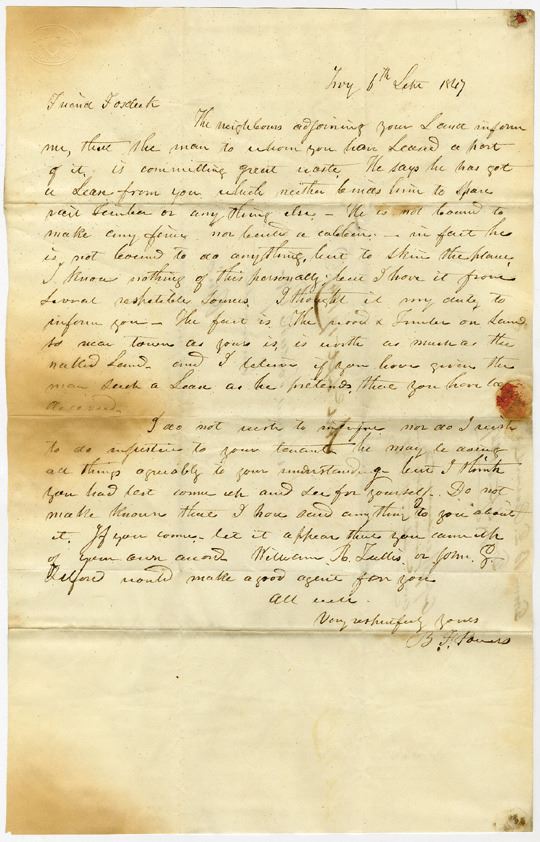 Troy 6th Sept 1847
Friend Fosdick
The neighbours adjoining your Land inform
me, that the man to whom you have Leased a part
of it, is committing great waste. He says he has got
a Lease from you which neither binds him to spare
rail timber or any thing else - He is not bound to
make any fence nor build a cabbin - in fact he
is not bound to do anything, but to skin the place,
I know nothing of this personally; but I have it from
several respectible sources I thought it my duty to
inform you - The fact is the wood & Timber on Land
so near town as yours is, is worth as much as the
naked Land. and I believe if you have given the
man such a Lease as he pretends, that you have been
deceived.
I do not wish to nor do I wish
to do injustice to your tenant he may be doing
all things agreably to your understanding - but I think
you had best come up and see for yourself. Do not
make known that I have said anything to you about
it. If you come - let it appear that you came up
of your own accord William A. or John G.
would make a good agent for you
All well.
Very respectfully yours
B. F. Powers